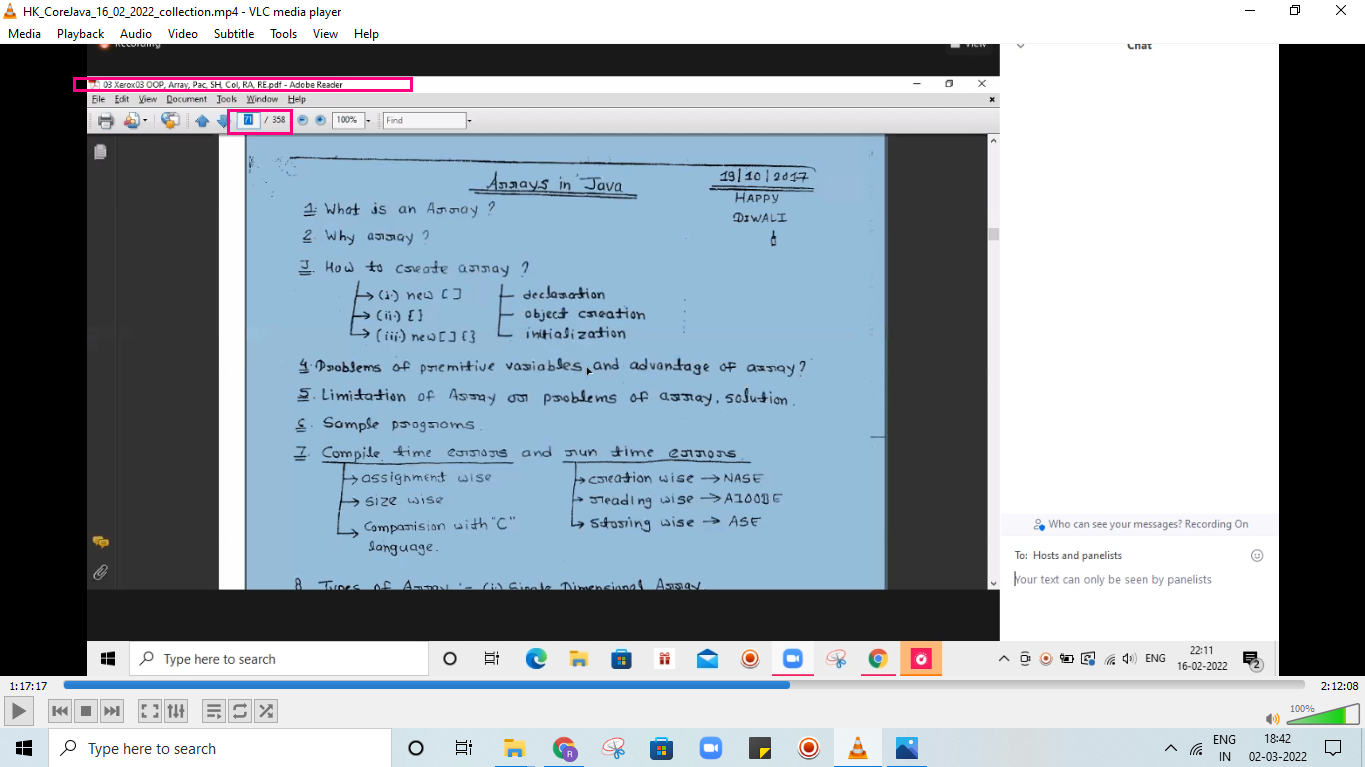 HK_CoreJava_16_02_2022_collection.mp4 - VLC media player
Media Playback Audio Video Subtitle Tools View Help
Recording View Chat
03 Xerox03 OOP, Array, Pac, SH, Col, RA, RE.pdf - Adobe Reader
File Edit View Document Tools Window Help
71 / 358 100% Find
Arrays in Java
19/10/2017
HAPPY
DIWALI
1. What is an Array ?
2. Why array ?
3. How to create array ?
(i.) new [ ] declaration
(ii.) { } object creation
(iii.) new [ ] { } initialization
4. Problems of premitive variables and advantage of array ?
5. Limitation of Array or problems of array, solution.
6. Sample programs.
7. Compile time errors and run time errors.
assignment wise creation wise → NASE
size wise reading wise → AIOOBE
Comparision with "C" storing wise → ASE
language.
8. Types of Array :- (i) Single Dimensional Array
Who can see your messages? Recording On
To: Hosts and panelists
Your text can only be seen by panelists
Type here to search
ENG
22:11
16-02-2022
2
1:17:17 2:12:08
100%
Type here to search
R
ENG
IN
18:42
02-03-2022